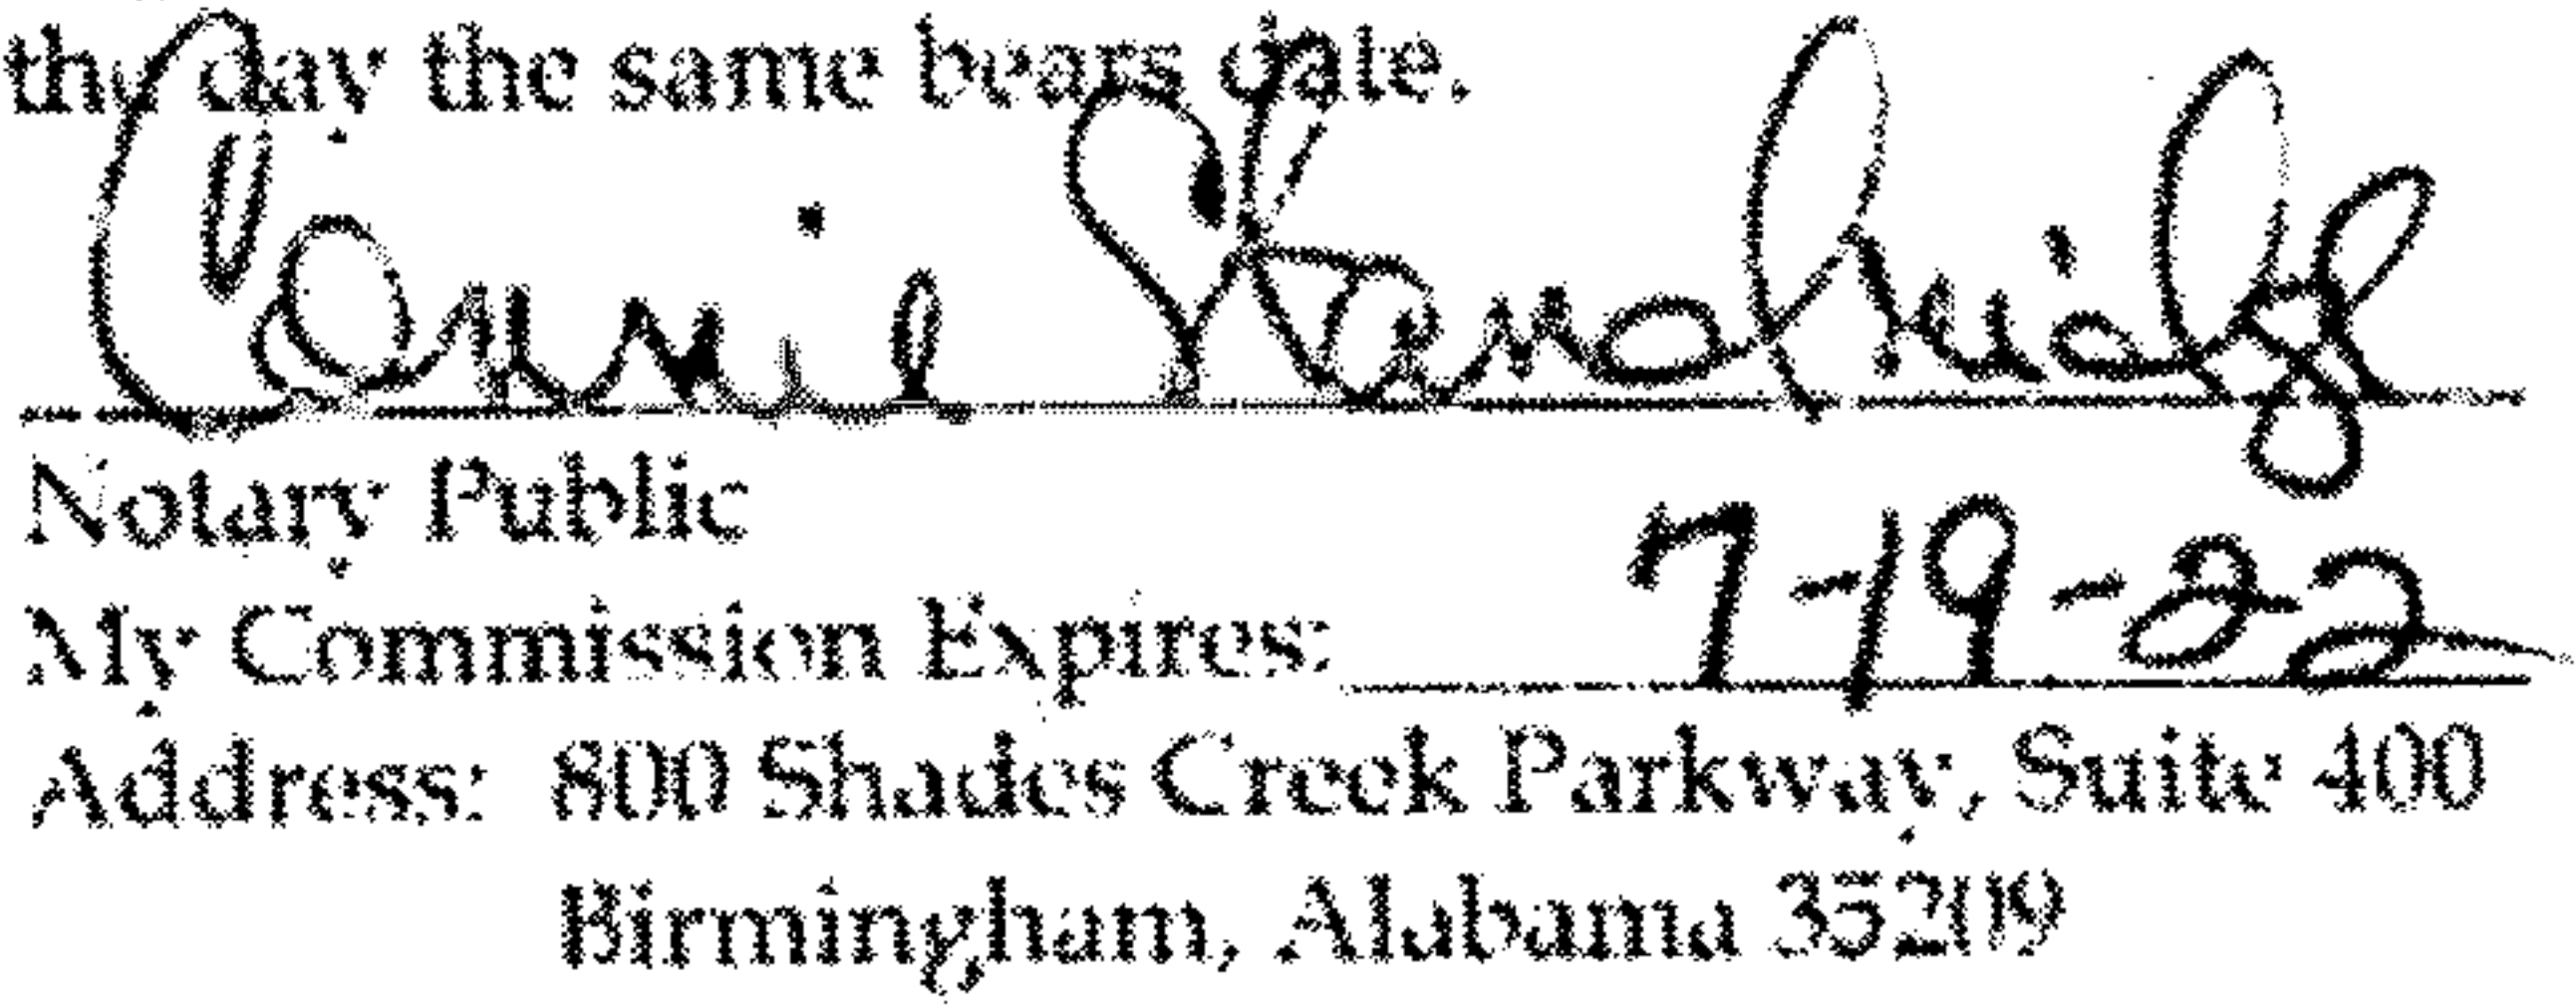 the day the same bears date.
Connie
Notary Public
My Commission Expires: 7-19-22
Address: 800 Shades Creek Parkway, Suite 400
Birmingham, Alabama 35209